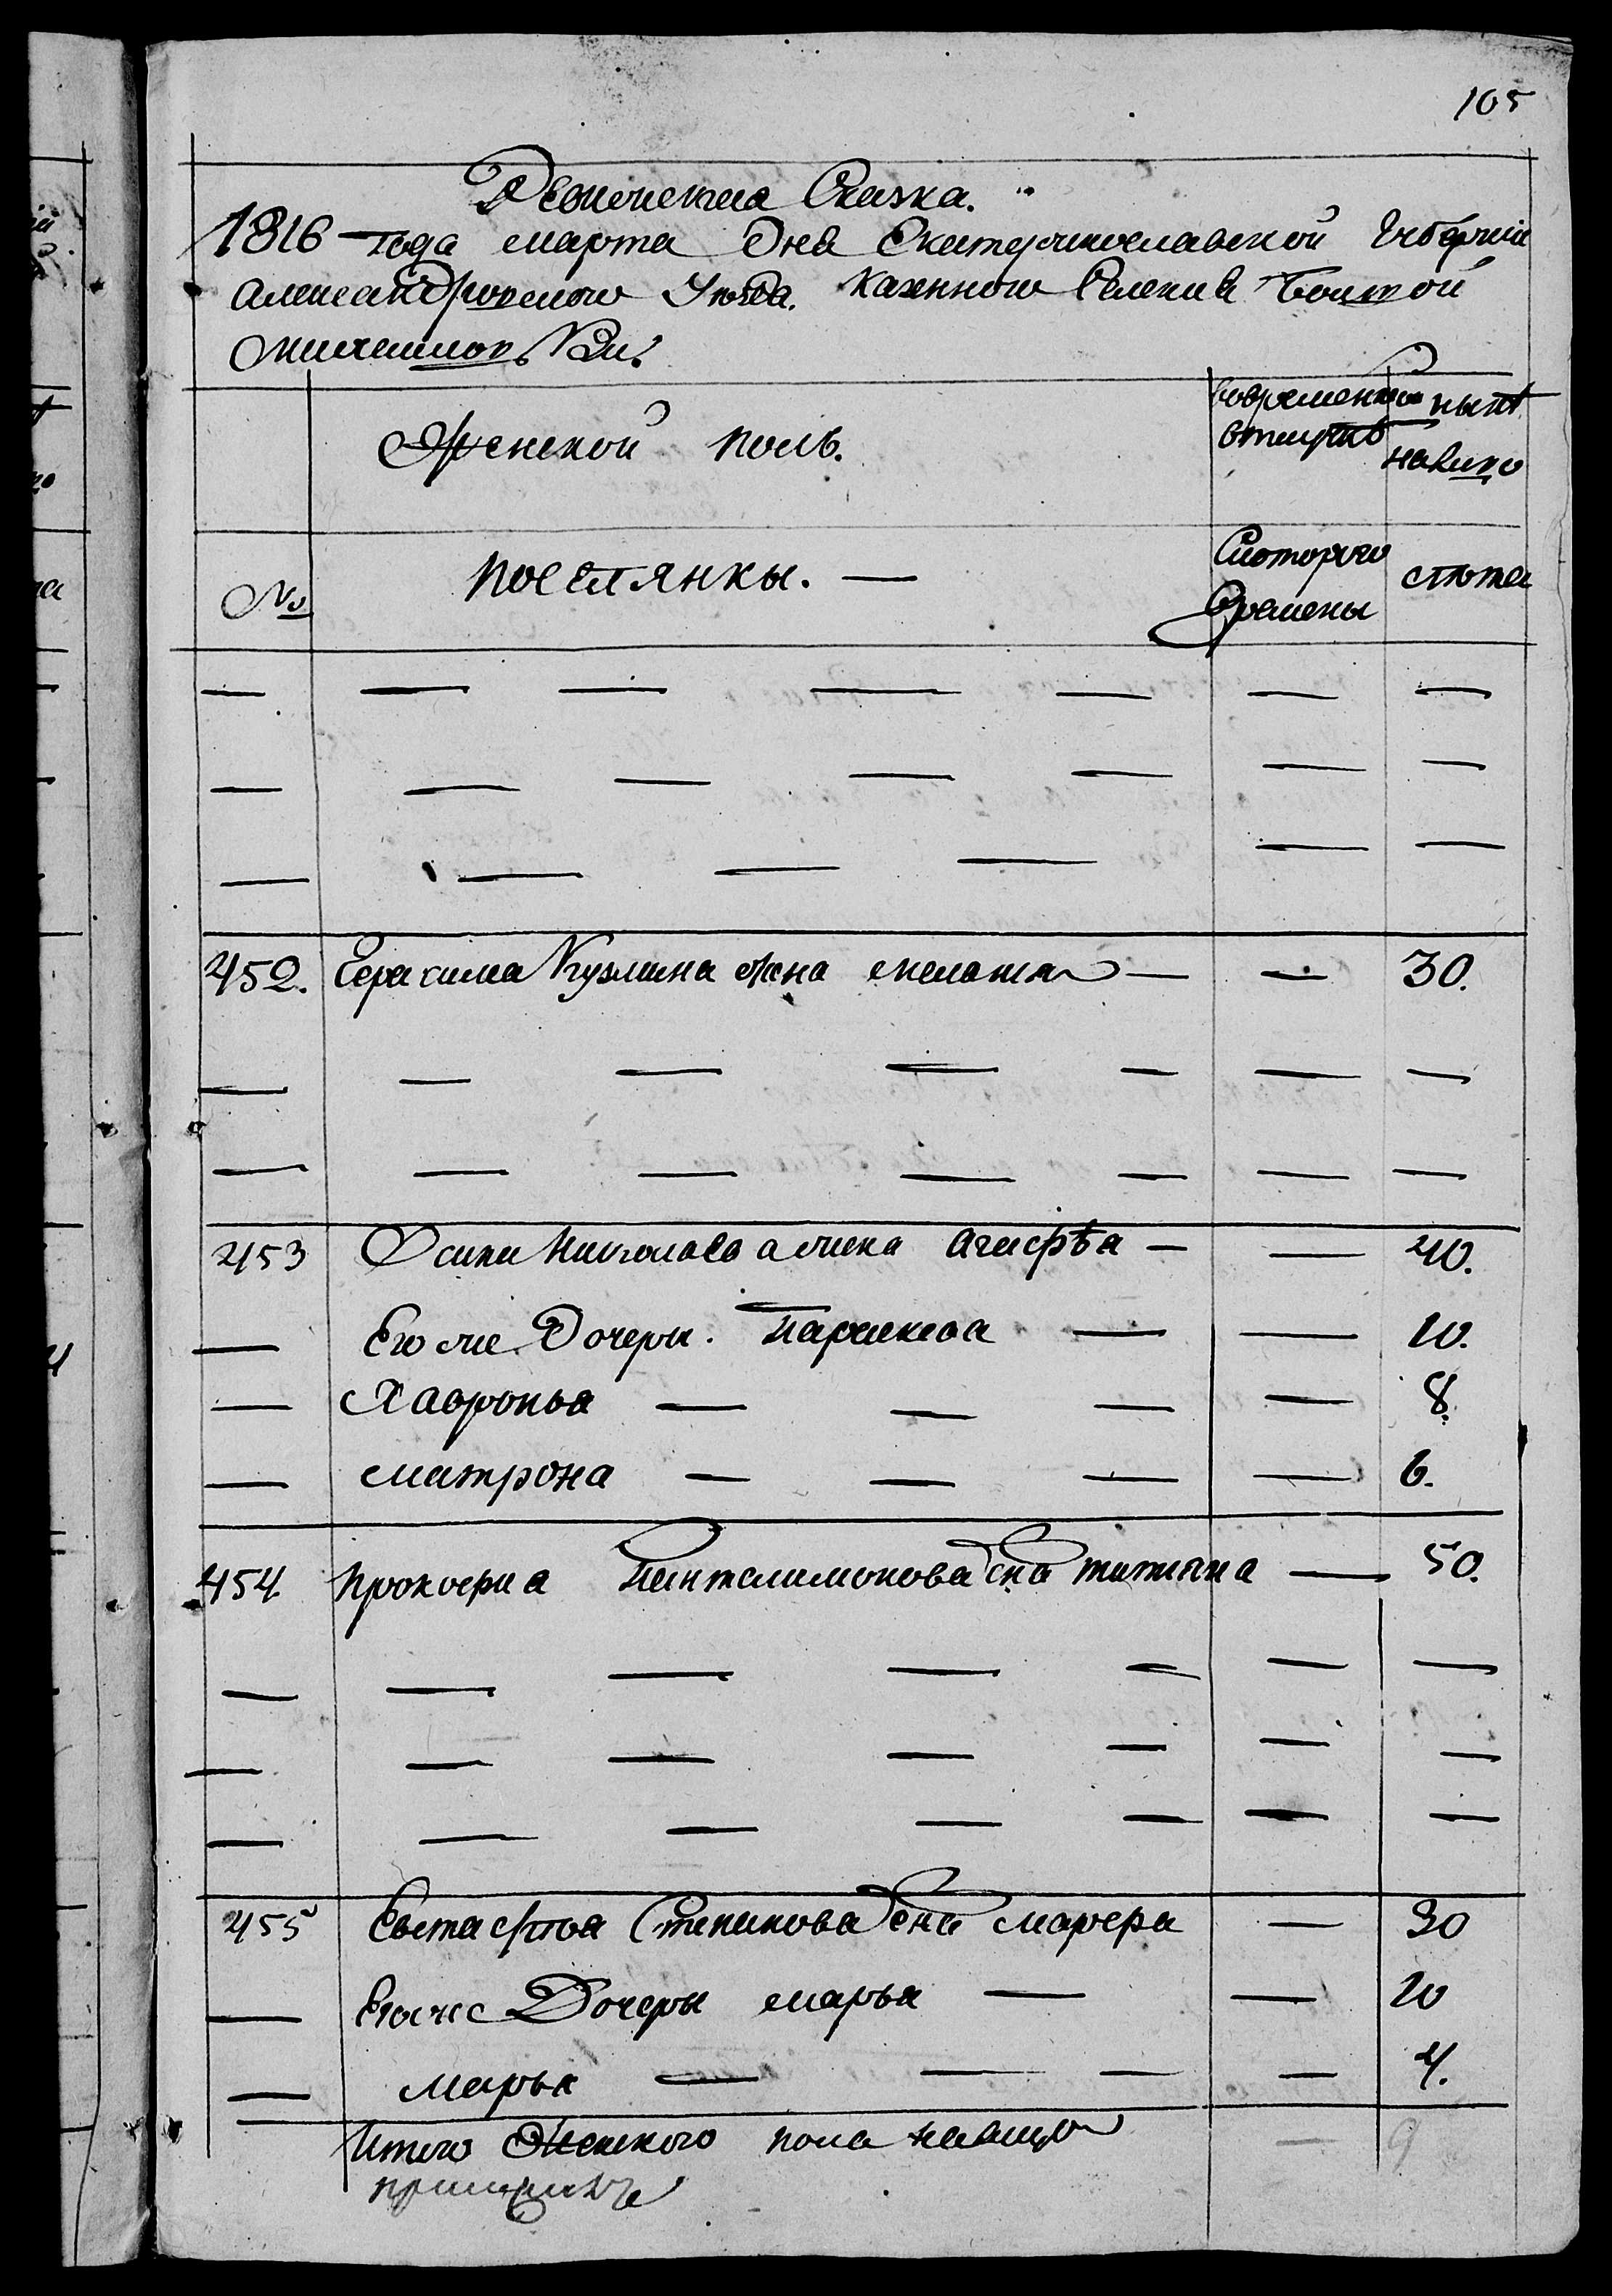 105
Ревижская Сказка.
1816 года марта дня Екатеринославской Губернiи
Александровского Уѣзда. Казенного Селенiя Большой
Михайловки.
Женской полъ.
Во временной отлучкѣ
нынѣ на лицо
№
поселянки. —
Съ которого времены
лѣта
— — — — — — —
— — — — — — —
— — — — — —
452. Герасима Кузмина жена меланья — — 30.
— — — — — — —
— — — — — — —
453 Осипа Николаева жена Агафѣа — — 40.
— Его же Дочеры. Парасковa — — 10.
— Хавронья — — — — 8.
— матрона — — — — 6.
454 Прокофиа Пантелимонова жена татяна — 50.
— — — — — — —
— — — — — — —
— — — — — — —
455 Евстафѣа Степанова жена марфа — 30
— Его же Дочеры марья — — 10
— Марья — — — — 4.
Итого Женского пола налицо — 9